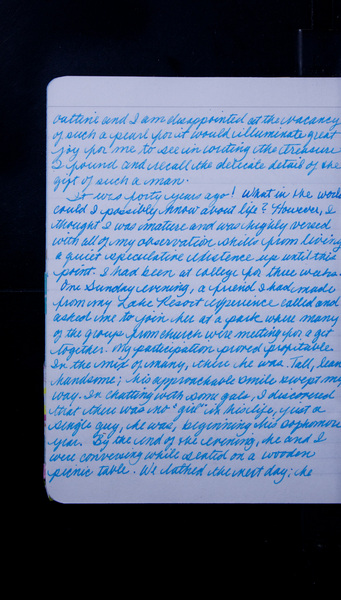 outline and I am disappointed at the vacancy
of such a pearl for it would illuminate great
joy for me to see in writing the treasure
I found and recall the delicate detail of the
gift of such a man.
It was forty years ago! What in the world
could I possibly know about life? However, I
thought I was mature and was highly versed
with all of my observation skills from living
a quiet speculative existence up until this
point. I had been at college for three weeks.
One Sunday evening, a friend I had made
from my Lake Resort experience called and
asked me to join her at a park where many
of the groups from church were meeting for a get
together. My participation proved profitable.
In the mix of many, there he was. Tall, lean
handsome; his approachable smile swept my
way. In chatting with some gals, I discovered
that there was no "girl" in his life, just a
single guy, he was, beginning his sophomore
year. By the end of the evening, he and I
were conversing while seated on a wooden
picnic table. We talked the next day; he